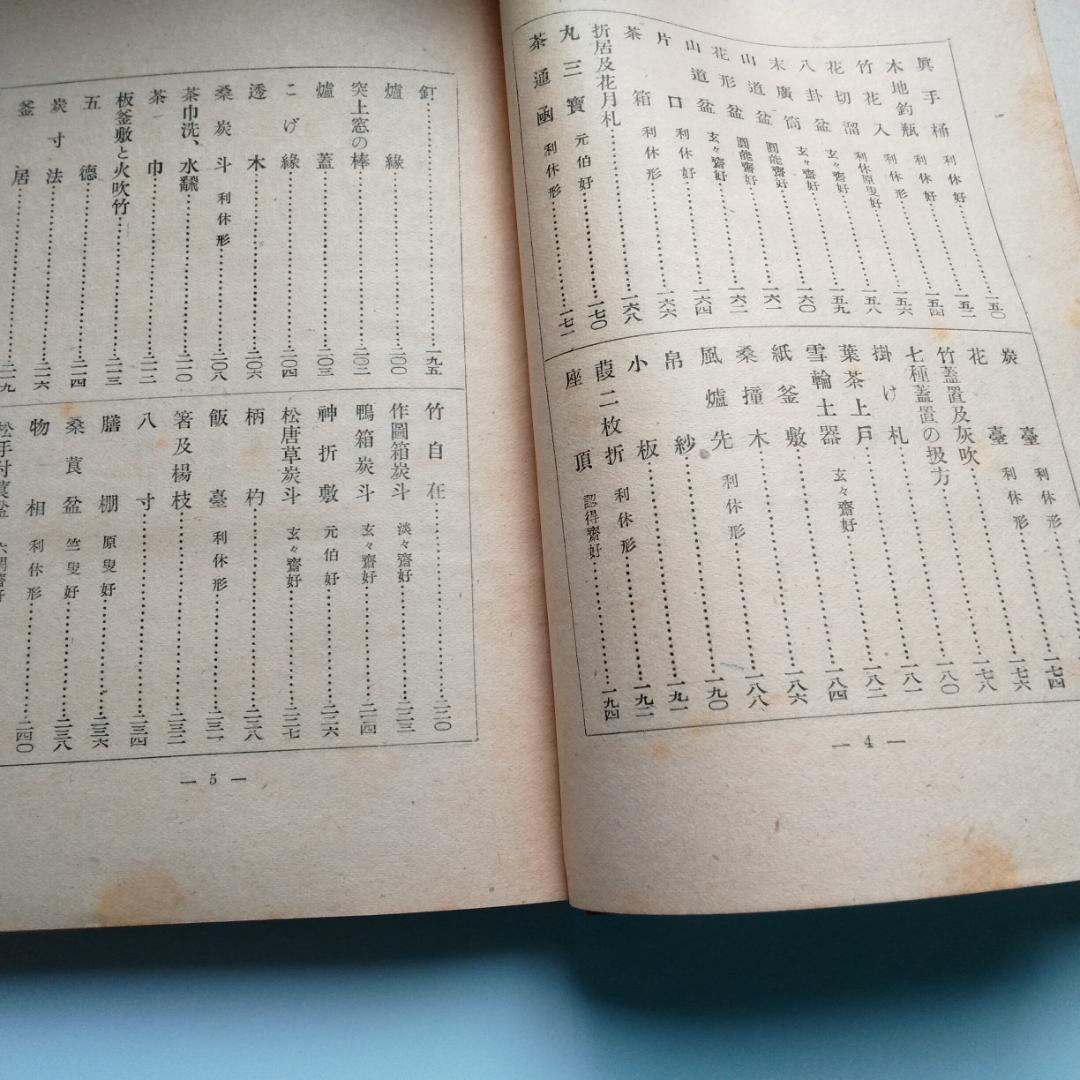 眞手桶 利休好 一五〇
木地釣瓶 利休好 一五二
竹花入 利休形 一五四
花切溜 利休原叟好 一五六
八卦盆 玄々齋好 一五八
末廣筒 玄々齋好 一五九
山道盆 圓能齋好 一六〇
花形盆 圓能齋好 一六一
山道盆 玄々齋好 一六二
片口 利休好 一六四
茶箱 利休形 一六六
折居及花月札 一六八
丸三寶 元伯好 一七〇
茶通凾 利休形 一七一
炭臺 利休形
花臺 利休形 一七四
竹蓋置及灰吹 一七六
七種蓋置の扱方 一七八
掛け札 一八〇
葉茶上戸 一八一
雪輪土器 玄々齋好 一八二
紙釜敷 一八四
桑撞木 一八六
風爐先 利休形 一八八
帛紗 一九〇
小板 一九一
葭二枚折 利休形 一九二
座頂 認得齋好 一九四
— 4 —
釘 一九五
爐緣 二〇〇
突上窓の棒 二〇二
爐蓋 二〇三
こげ緣 二〇四
透木 二〇六
桑炭斗 利休形 二〇八
茶巾洗、水飜 二一〇
茶巾 二一二
板釜敷と火吹竹 二一三
五德 二一四
炭寸法 二一六
釜居 二一九
竹自在 二二〇
作圖箱炭斗 淡々齋好 二二三
鴨箱炭斗 玄々齋好 二二四
神折敷 元伯好 二二六
松唐草炭斗 玄々齋好 二二七
柄杓 二二八
飯臺 利休形 二三一
箸及楊枝 二三二
八寸 二三四
膳棚 原叟好 二三六
桑莨盆 竺叟好 二三八
物相 利休形 二四〇
松手付莨盆
— 5 —